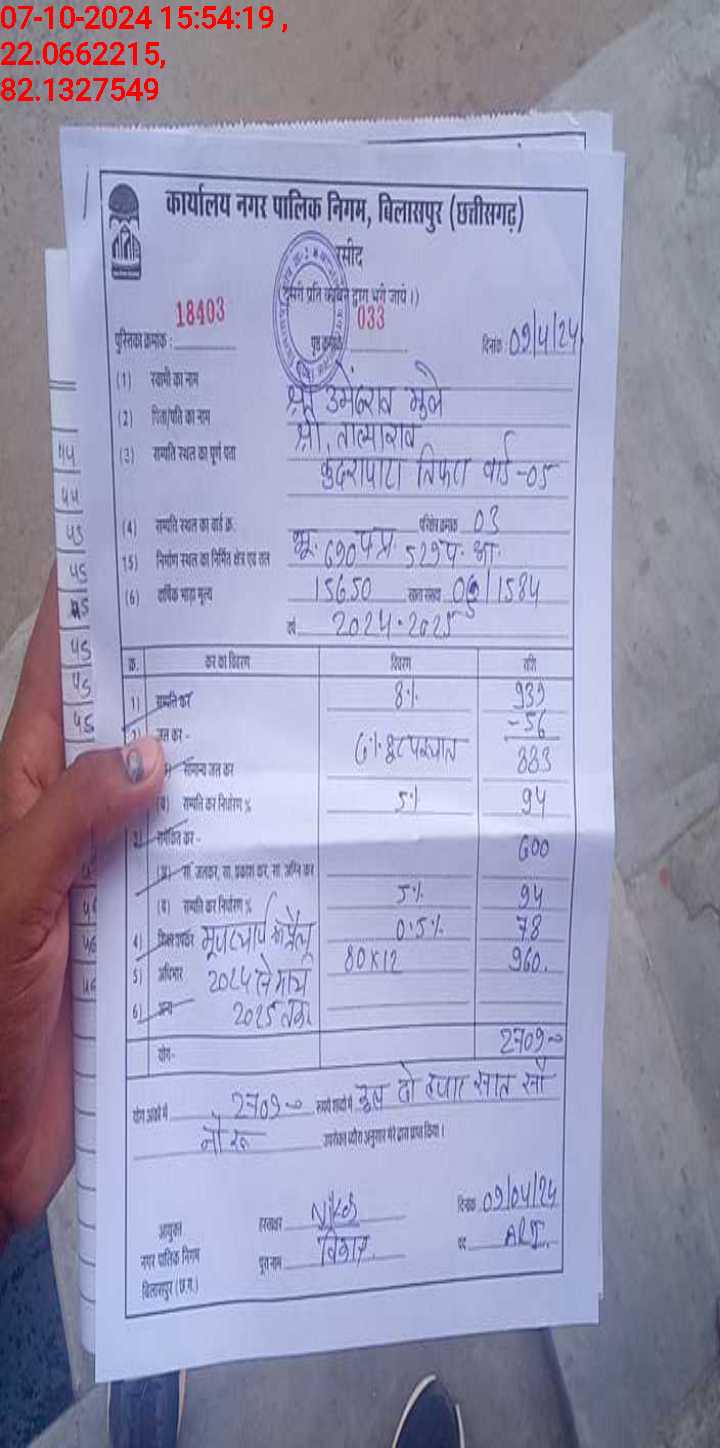 07-10-2024 15:54:19 ,
22.0662215,
82.1327549
कार्यालय नगर पालिक निगम, बिलासपुर (छत्तीसगढ़)
रसीद
प्रति द्वारा भरी जाये।)
पुस्तिका क्रमांक : 18403 पृष्ठ क्रमांक 033 दिनांक 09/4/24
(1) स्वामी का नाम श्री उमेदराव मुले
(2) पिता/पति का नाम श्री. तात्याराव
(3) सम्पत्ति स्थल का पूर्ण पता कुदरापारा तिफरा वार्ड -05
(4) सम्पत्ति स्थल का वार्ड क्र. परिक्षेत्र क्रमांक 03
15) निर्माण स्थल का निर्मित क्षेत्र एवं तल भू. 690 529
(6) वार्षिक भाड़ा मूल्य 15650 1584
वर्ष 2024-2025
क्र. कर का विवरण विवरण राशि
1) सम्पत्ति कर 8% 939
-56
जल कर - 6% छूट पश्चात 883
सामान्य जल कर
(ब) सम्पत्ति कर निर्धारण % 5% 94
समेकित कर - 600
(अ) सा. जलकर, सा. प्रकाश कर, सा. अग्नि कर
(ब) सम्पत्ति कर निर्धारण % 5% 94
4) शिक्षा उपकर 0.5% 78
5) अधिभार 80x12 960.
2024 से मार्च
6) अन्य 2025 तक
योग- 2709
योग अंकों में 2709 रूपये शब्दों में कुल दो हजार सात सौ
नौ रू उपरोक्त ब्यौरा अनुसार मेरे द्वारा प्राप्त किया।
आयुक्त हस्ताक्षर दिनांक 09/04/24
नगर पालिक निगम पूरा नाम पद
बिलासपुर (छ.ग.)